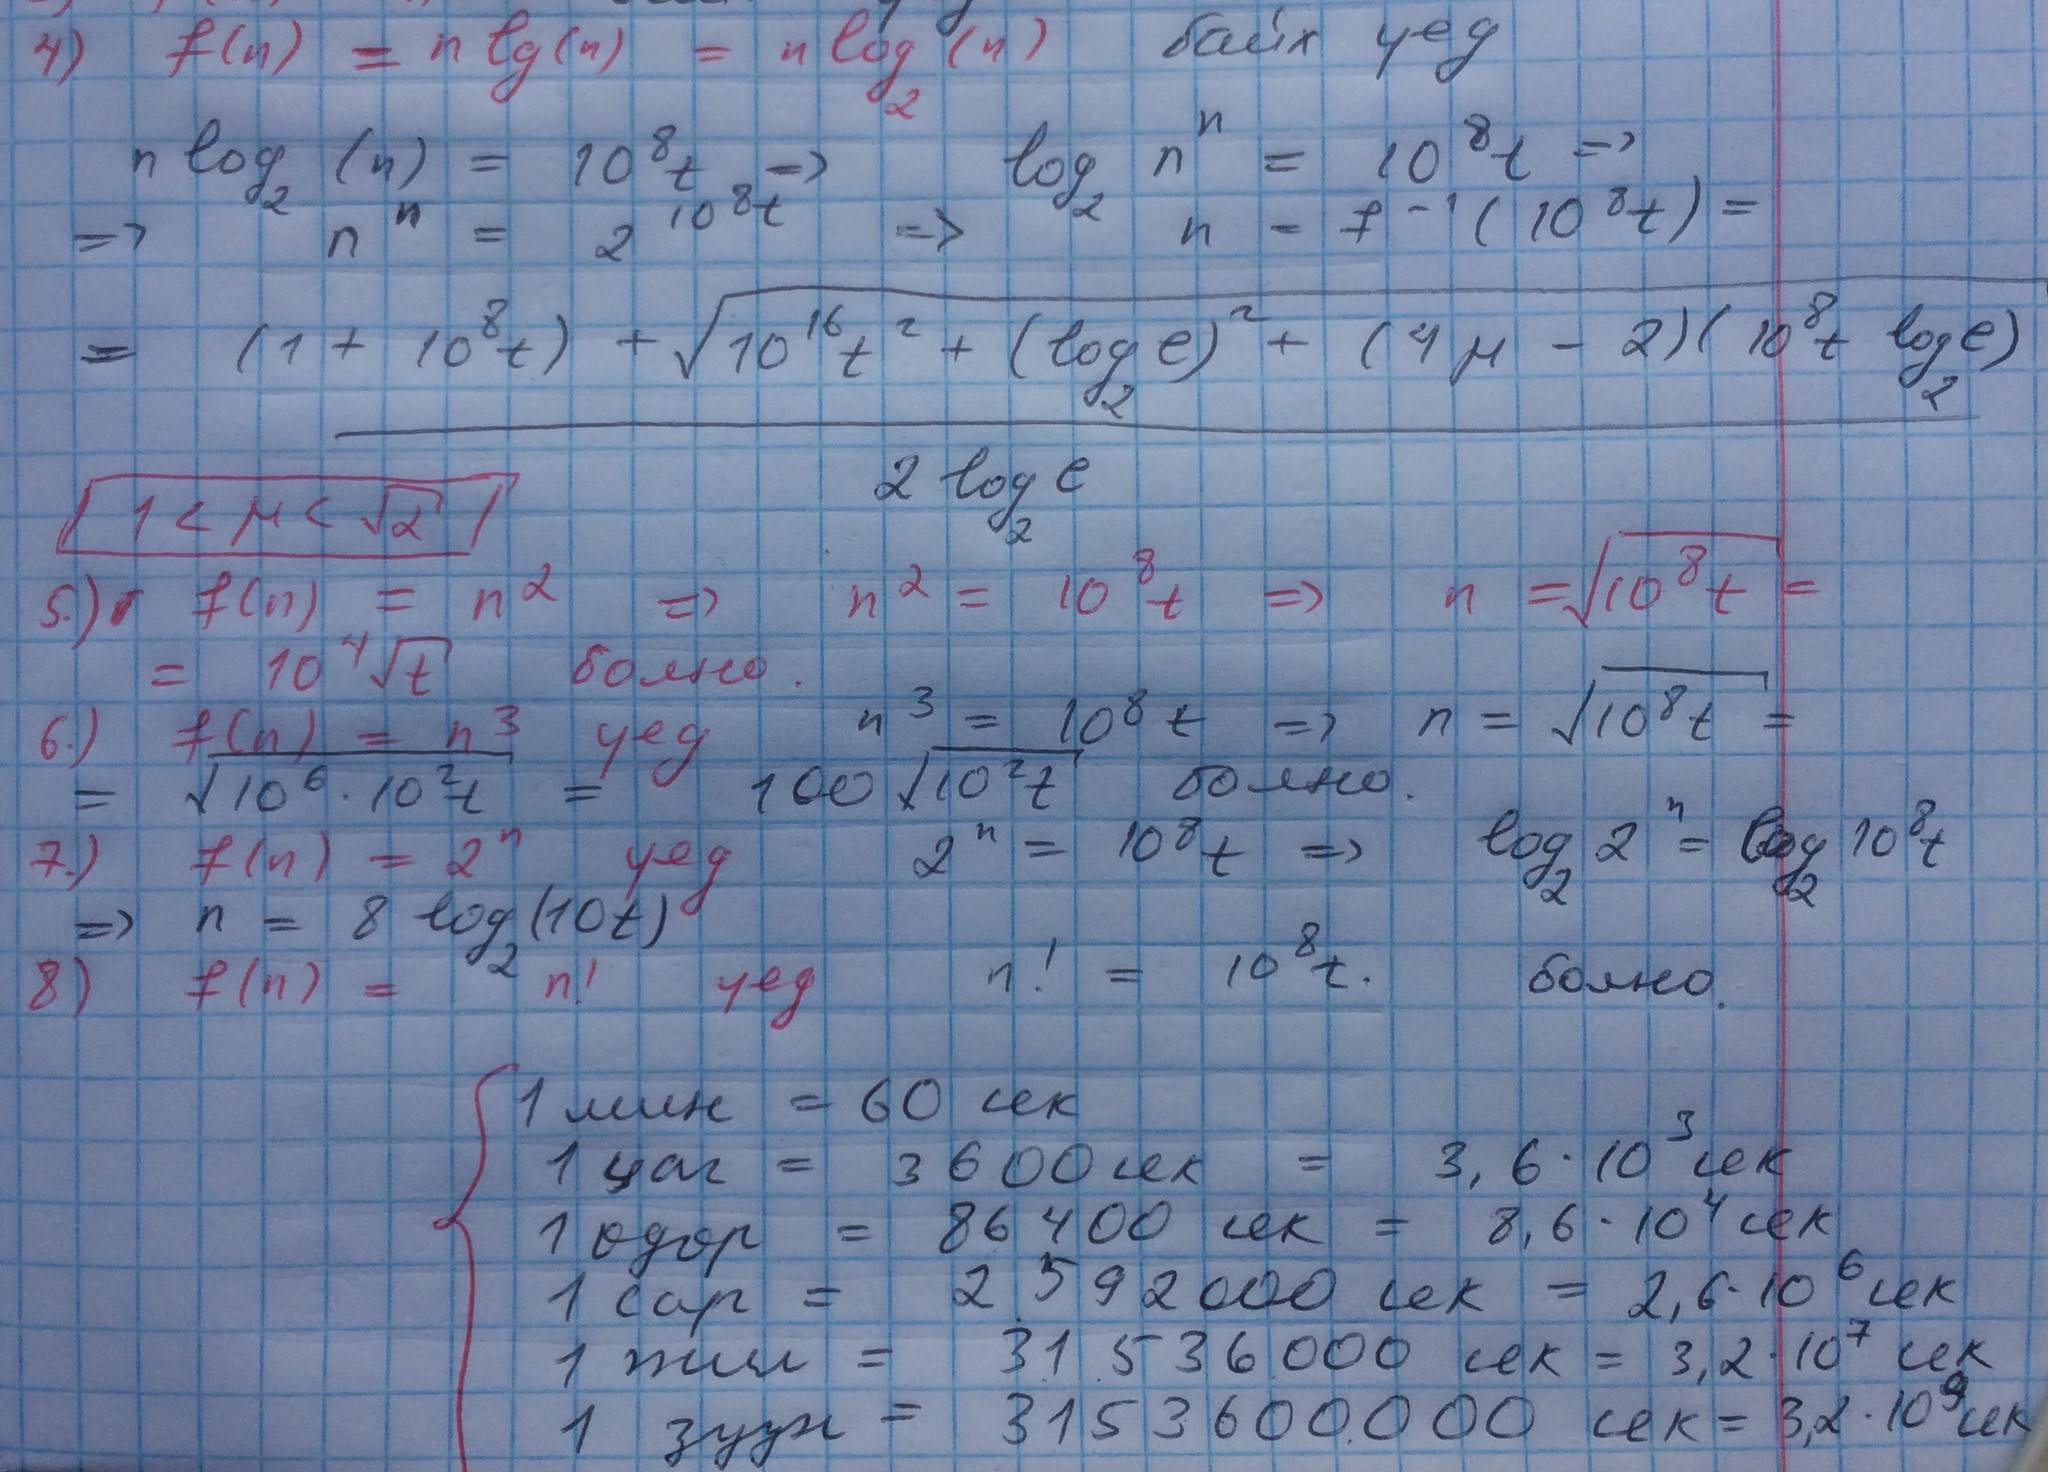 4) f(n) = n lg(n) = n log₂(n) байх үед
n log₂(n) = 10⁸t => log₂ nⁿ = 10⁸t =>
=> nⁿ = 2^(10⁸t) => n = f⁻¹(10⁸t) =
= (1 + 10⁸t) + √(10¹⁶t² + (log₂e)² + (4μ - 2)(10⁸t log₂e))
2 log₂e
1 < μ < √2
5.) f(n) = n² => n² = 10⁸t => n = √(10⁸t) =
= 10⁴√t болно.
6.) f(n) = n³ үед n³ = 10⁸t => n = √(10⁸t) =
= √(10⁶·10²t) = 100√(10²t) болно.
7.) f(n) = 2ⁿ үед 2ⁿ = 10⁸t => log₂2ⁿ = log₂10⁸t
=> n = 8 log₂(10t)
8) f(n) = n! үед n! = 10⁸t. болно.
1 мин = 60 сек
1 цаг = 3600 сек = 3,6·10³ сек
1 өдөр = 86400 сек = 8,6·10⁴ сек
1 сар = 2592000 сек = 2,6·10⁶ сек
1 жил = 31536000 сек = 3,2·10⁷ сек
1 зуун = 3153600000 сек = 3,2·10⁹ сек